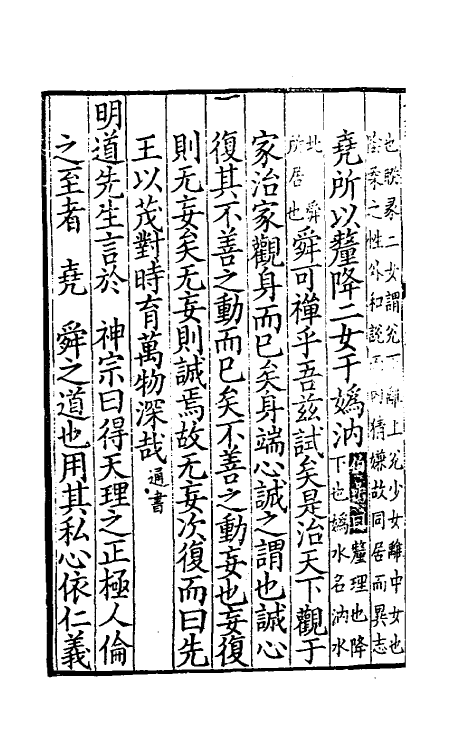 也睽彖二女謂兌下離上兌少女離中女也
陰柔之性外和說而內猜嫌故同居而異志
堯所以釐降二女于媯汭 釐理也降
下也媯水名汭水
北舜
所居也
舜可禪乎吾茲試矣是治天下觀于
家治家觀身而已矣身端心誠之謂也誠心
復其不善之動而已矣不善之動妄也妄復
則无妄矣无妄則誠焉故无妄次復而曰先
王以茂對時育萬物深哉 通書
明道先生言於 神宗曰得天理之正極人倫
之至者 堯 舜之道也用其私心依仁義